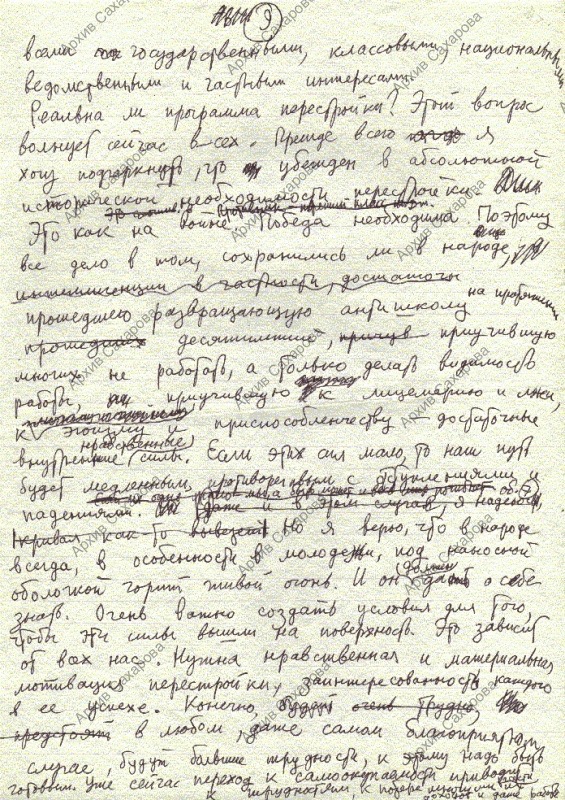 9
всеми государственными, классовыми, национальными,
ведомственными и частными интересами.
Реальна ли программа перестройки? Этот вопрос
волнует сейчас всех. Прежде всего я
хочу подчеркнуть, что убежден в абсолютной
исторической необходимости перестройки.
Это как на войне. Победа необходима. Поэтому
все дело в том, сохранились ли в народе,
интеллигенции в частности, достаточн
прошедшего развращающую антишколу на протяжении
десятилетий, приучившую
многих не работать, а только делать видимость
работы, приучившую к лицемерию и лжи,
к эгоизму и приспособленчеству – достаточные
внутренние (нравственные) силы. Если этих сил мало, то наш путь
будет медленным, противоречивым с отступлениями и
падениями. даже и в этом случае, я надеюсь,
кривая как-то вывезет Но я верю, что в народе
всегда, в особенности в молодежи, под наносной
оболочкой горит живой огонь. И он должен дать о себе
знать. Очень важно создать условия для того,
чтобы эти силы вышли на поверхность. Это зависит
от всех нас. Нужна нравственная и материальная
мотивация перестройки, заинтересованность каждого
в ее успехе. Конечно, будет очень трудно,
предстоят в любом, даже самом благоприятном
случае, будут большие трудности, к этому надо быть
готовым. Уже сейчас переход к самоокупаемости приводит
к трудностям, к потере доходов и даже работы
Архив Сахарова